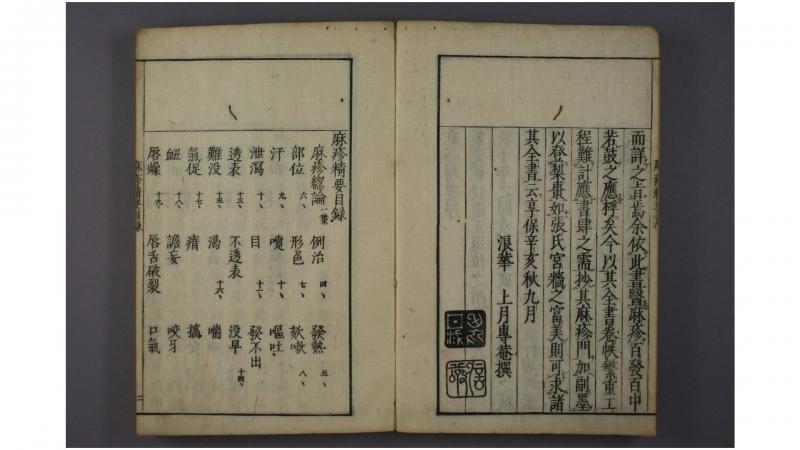 而詳之者焉余依此書醫麻疹百發百中
若鼓之應桴矣今以其全書卷帙繁重工
程難計應書肆之需抄其麻疹門加副墨
以登梨棗如張氏宮牆之富美則可求諸
其全書云享保辛亥秋九月
浪華 上月專菴撰
麻疹精要目録
麻疹總論 一葉 例治 四、 發熱 五、
部位 六、 形色 七、 欬嗽 八、
汗 九、 嚏 十、 嘔吐、
泄瀉 十、 目 十一、 發不出
透表 十三、 不透表 没早 十四、
難没 十五、 渴 十六、 喘
氣促 十七、 瘖 搐
衄 十八、 譫妄 咬牙
唇燥 十九、 唇舌破裂 口氣
麻疹精要目録